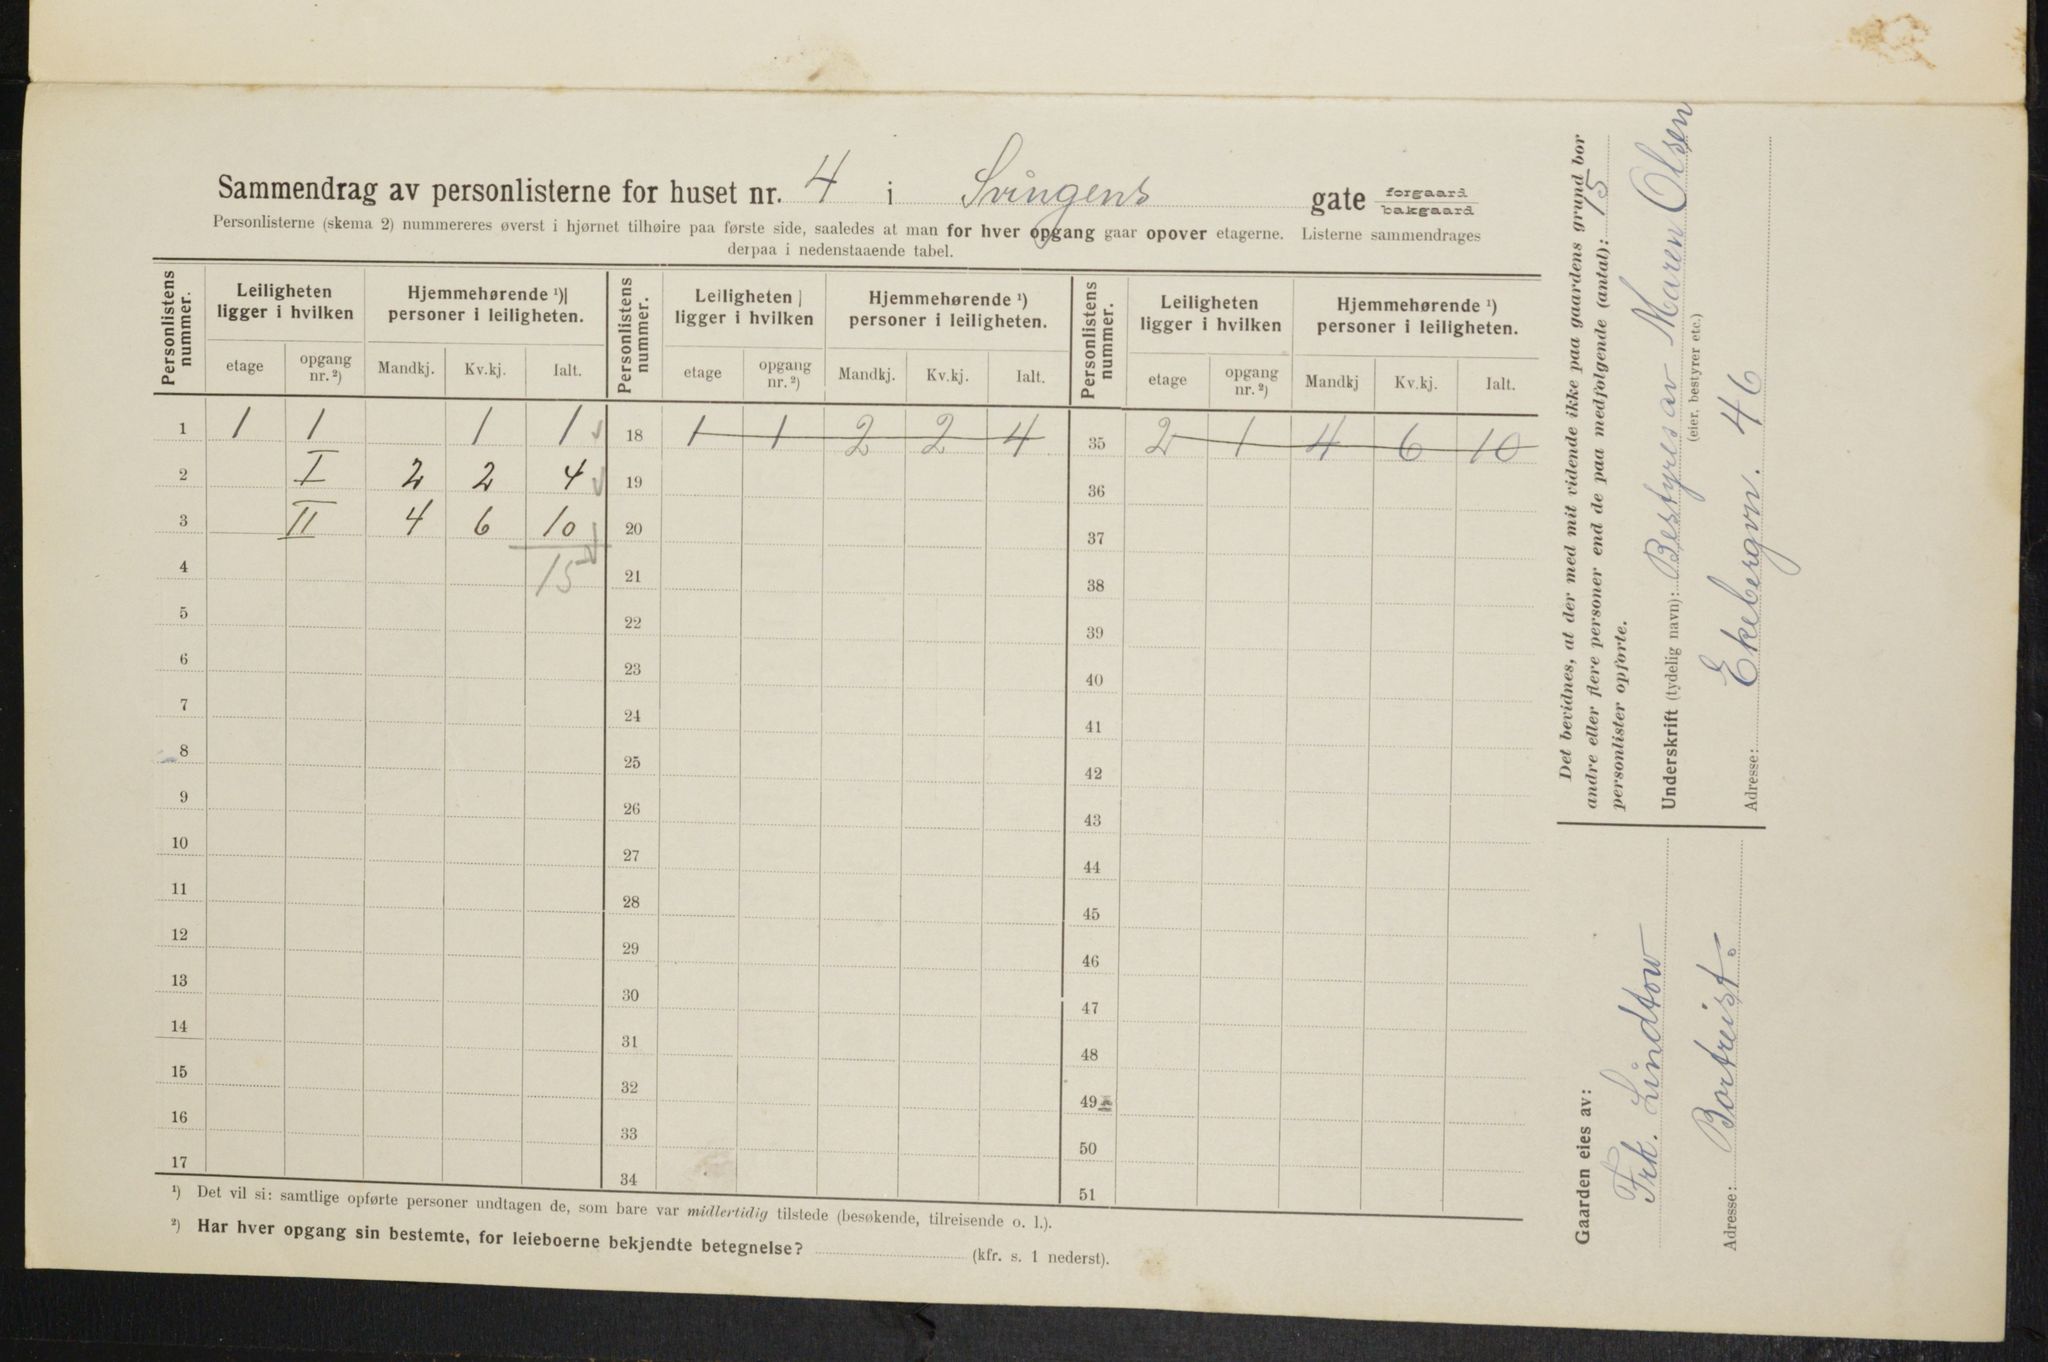 Sammendrag av personlisterne for huset nr. 4 i Svingens gate forgaard bakgaard
Personlisterne (skema 2) nummereres øverst i hjørnet tilhøire paa første side, saaledes at man for hver opgang gaar opover etagerne. Listerne sammendrages
derpaa i nedenstaaende tabel.
Personlistens nummer. Leiligheten ligger i hvilken Hjemmehørende ¹) personer i leiligheten. Personlistens nummer. Leiligheten ligger i hvilken Hjemmehørende ¹) personer i leiligheten. Personlistens nummer. Leiligheten ligger i hvilken Hjemmehørende ¹) personer i leiligheten.
etage opgang nr. ²) Mandkj. Kv.kj. Ialt. etage opgang nr. ²) Mandkj. Kv.kj. Ialt. etage opgang nr. ²) Mandkj Kv.kj. Ialt.
1 1 1 1 1 18 1 1 2 2 4 35 2 1 4 6 10
2 I 2 2 4 19 36
3 II 4 6 10 20 37
4 15 21 38
5 22 39
6 23 40
7 24 41
8 25 42
9 26 43
10 27 44
11 28 45
12 29 46
13 30 47
14 31 48
15 32 49
16 33 50
17 34 51
¹) Det vil si: samtlige opførte personer undtagen de, som bare var midlertidig tilstede (besøkende, tilreisende o. l.).
²) Har hver opgang sin bestemte, for leieboerne bekjendte betegnelse? (kfr. s. 1 nederst).
Det bevidnes, at der med mit vidende ikke paa gaardens grund bor
andre eller flere personer end de paa medfølgende (antal): 15
personlister opførte.
Underskrift (tydelig navn): Bestyres av Maren Olsen
(eier, bestyrer etc.)
Adresse: Ekebergvn. 46
Gaarden eies av:
Frk. Lindtow
Adresse: Bortreist.